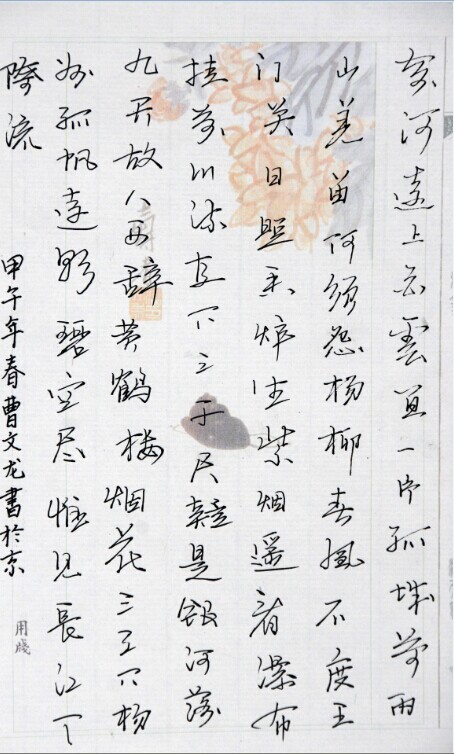 黄河遠上白雲间一片孤城萬仞
山羌笛何须怨杨柳春風不度玉
门关日照香炉生紫烟遥看瀑布
挂前川流直下三千尺疑是银河落
九天故人西辞黄鹤楼烟花三月下杨
州孤帆遠影碧空尽惟见長江天
際流
甲午年春曹文龙書於京
用牋